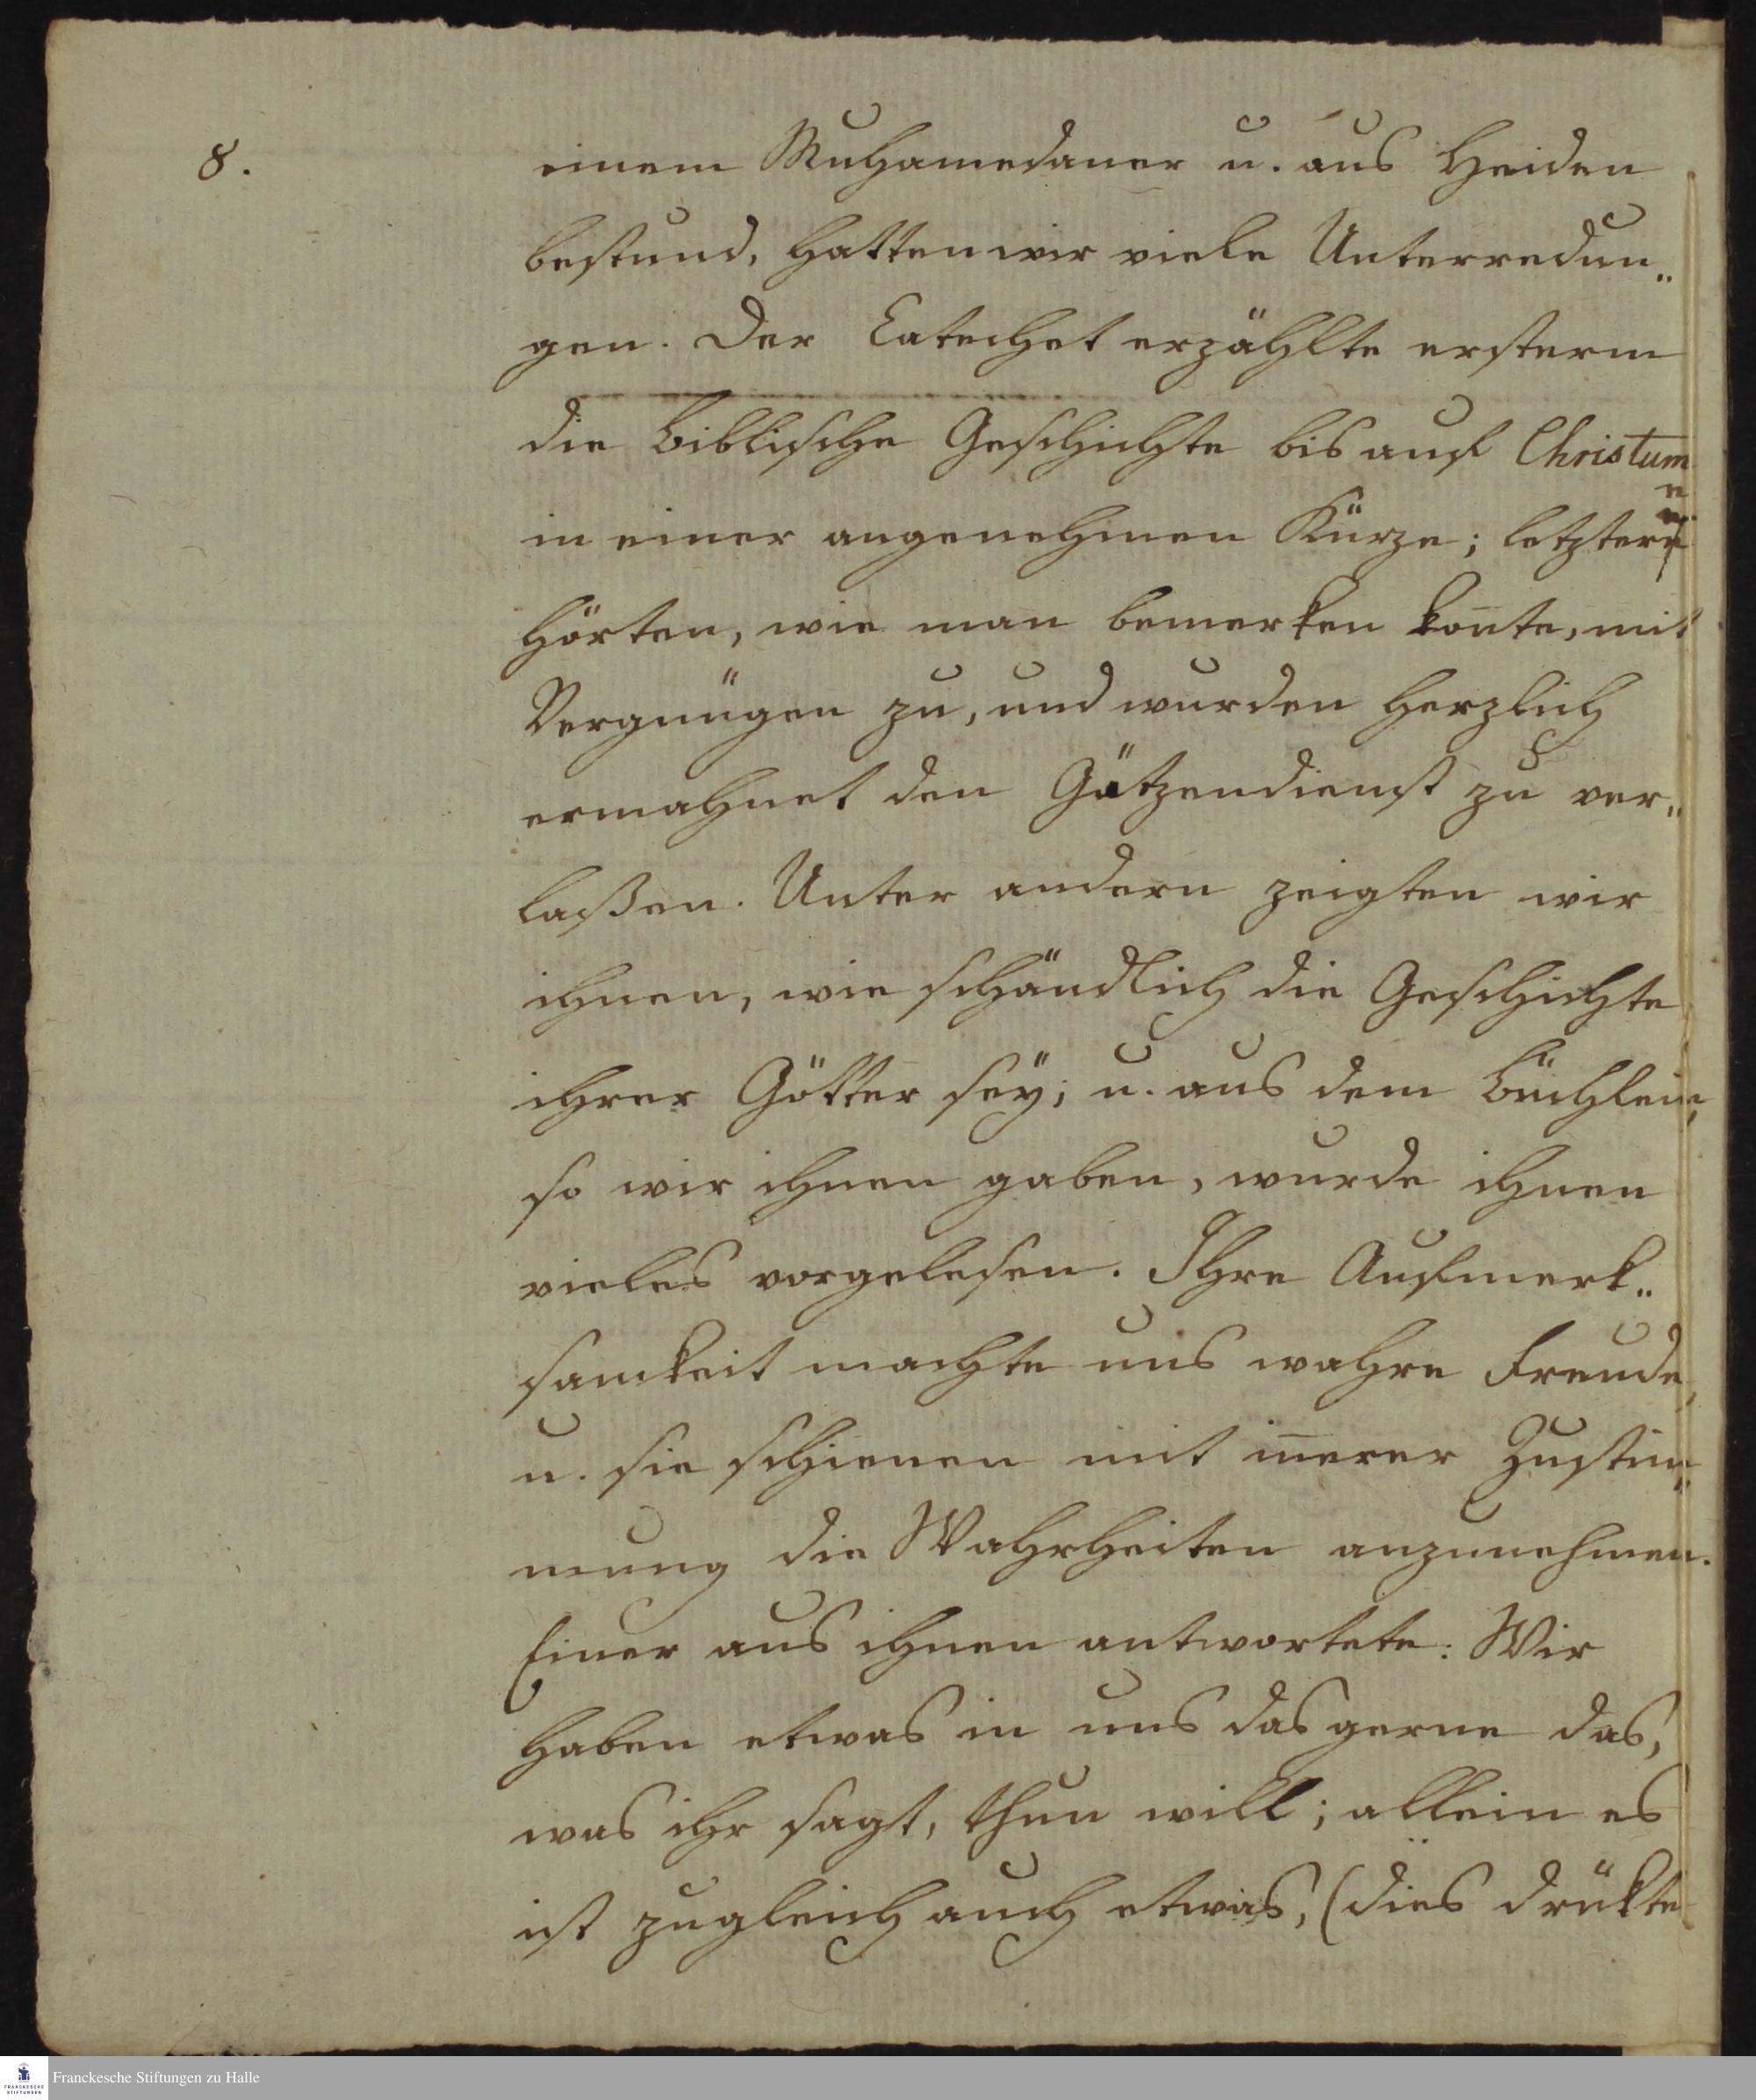 8.
einem Muhamedaner u. aus Heiden
bestund, hatten wir viele Unterredun„
gen. Der Catechet erzählte ersterm
die Biblische Geschichte bis auf Christum
in einer angenehmen Kürze; letztere
hörten, wie man bemerken kon̅te, mit
Vergnügen zu, und wurden herzlich
ermahnet den Götzendienst zu ver„
laßen. Unter andern zeigten wir
ihnen, wie schändlich die Geschichte
ihrer Götter seÿ; u. aus dem Büchlein,
so wir ihnen gaben, wurde ihnen
vieles vorgelesen. Ihre Aufmerk„
samkeit machte uns wahre Freude,
u. sie schienen mit in̅erer Zustim„
mung die Wahrheiten anzunehmen.
Einer aus ihnen antwortete: Wir
haben etwas in uns das gerne das,
was ihr sagt, thun will; allein es
ist zugleich auch etwas, (dies drükte
Franckesche Stiftungen zu Halle